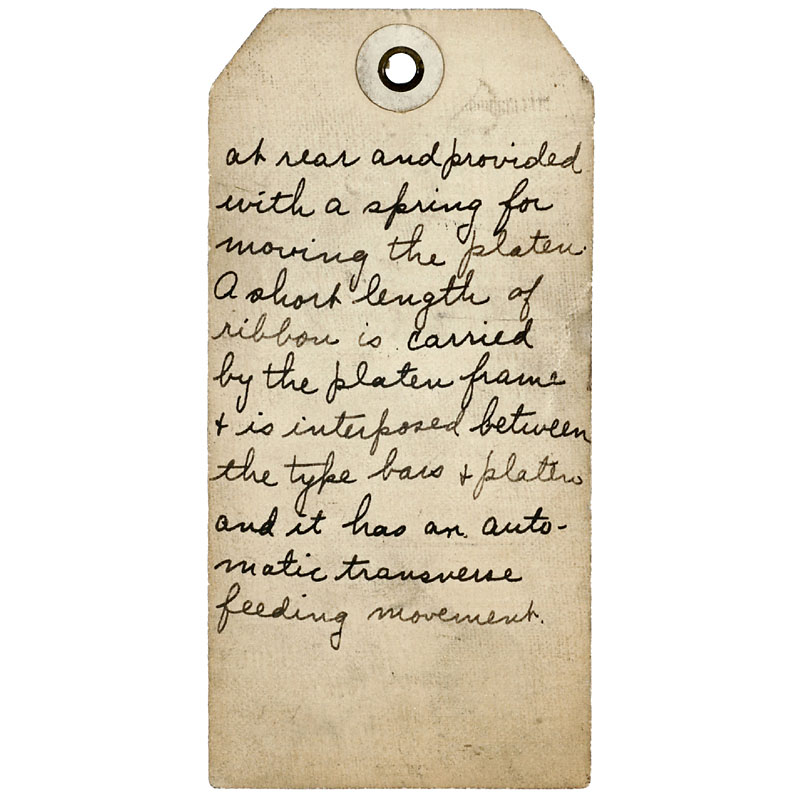 at rear and provided
with a spring for
moving the platen.
A short length of
ribbon is carried
by the platen frame
+ is interposed between
the type bars + platen
and it has an auto-
matic transverse
feeding movement.